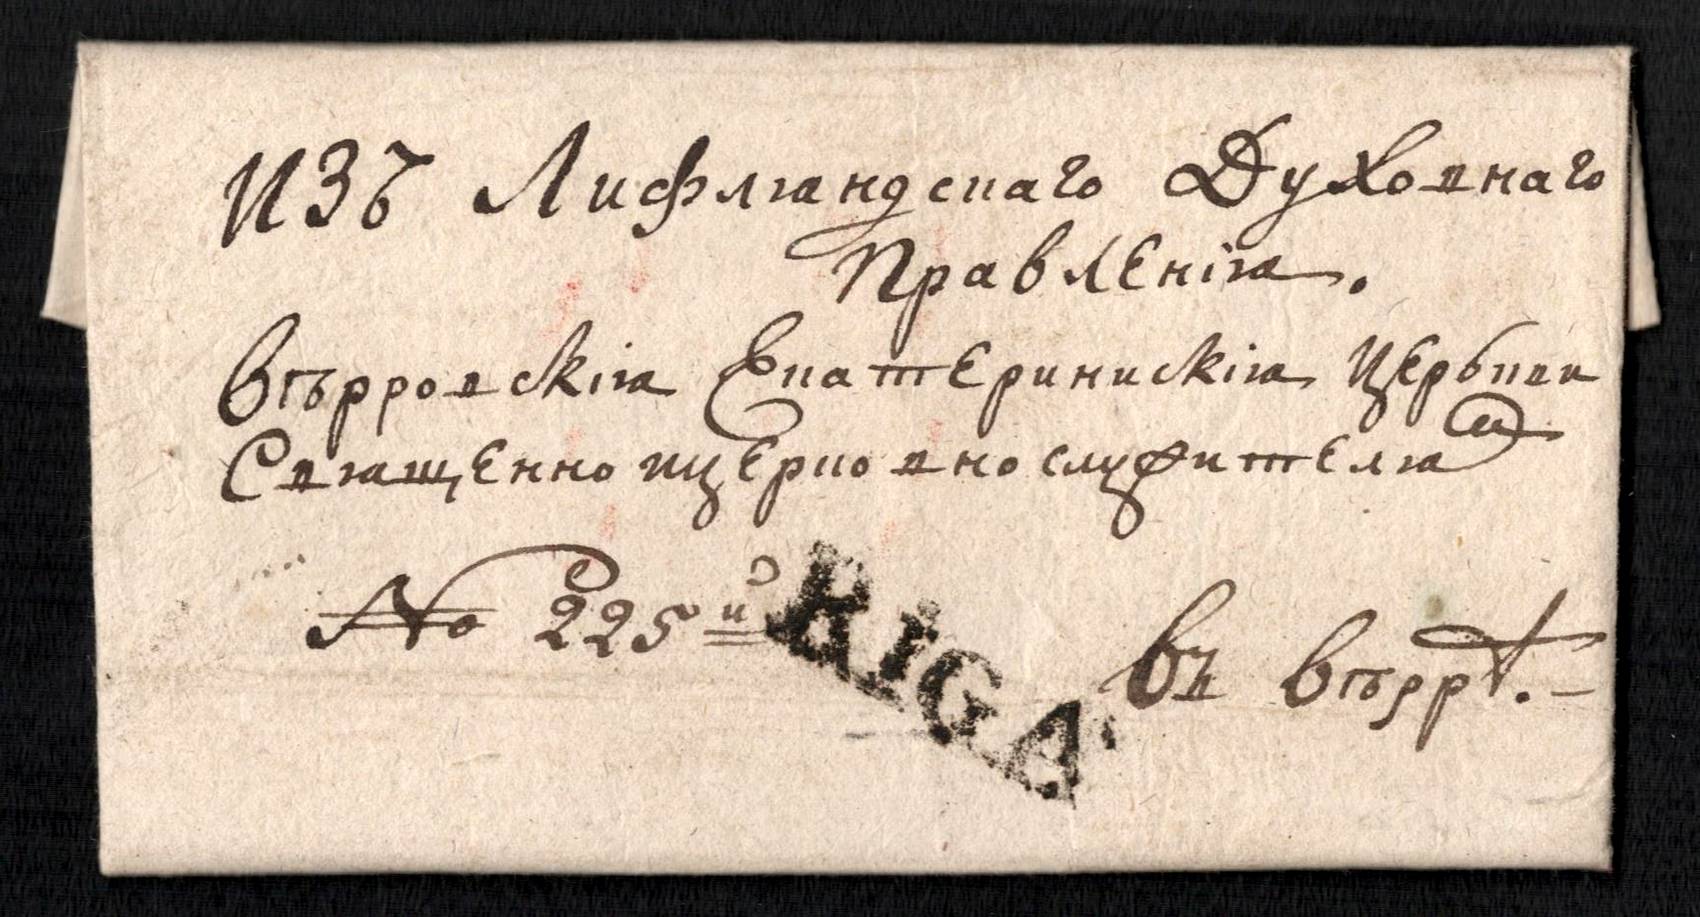 Изъ Лифляндскаго Духовнаго
Правленія.
Вѣрровскія Екатерининскія Церькви
Священно и церковно служителямъ
№ 225й
RIGA
Въ Вѣррѣ.